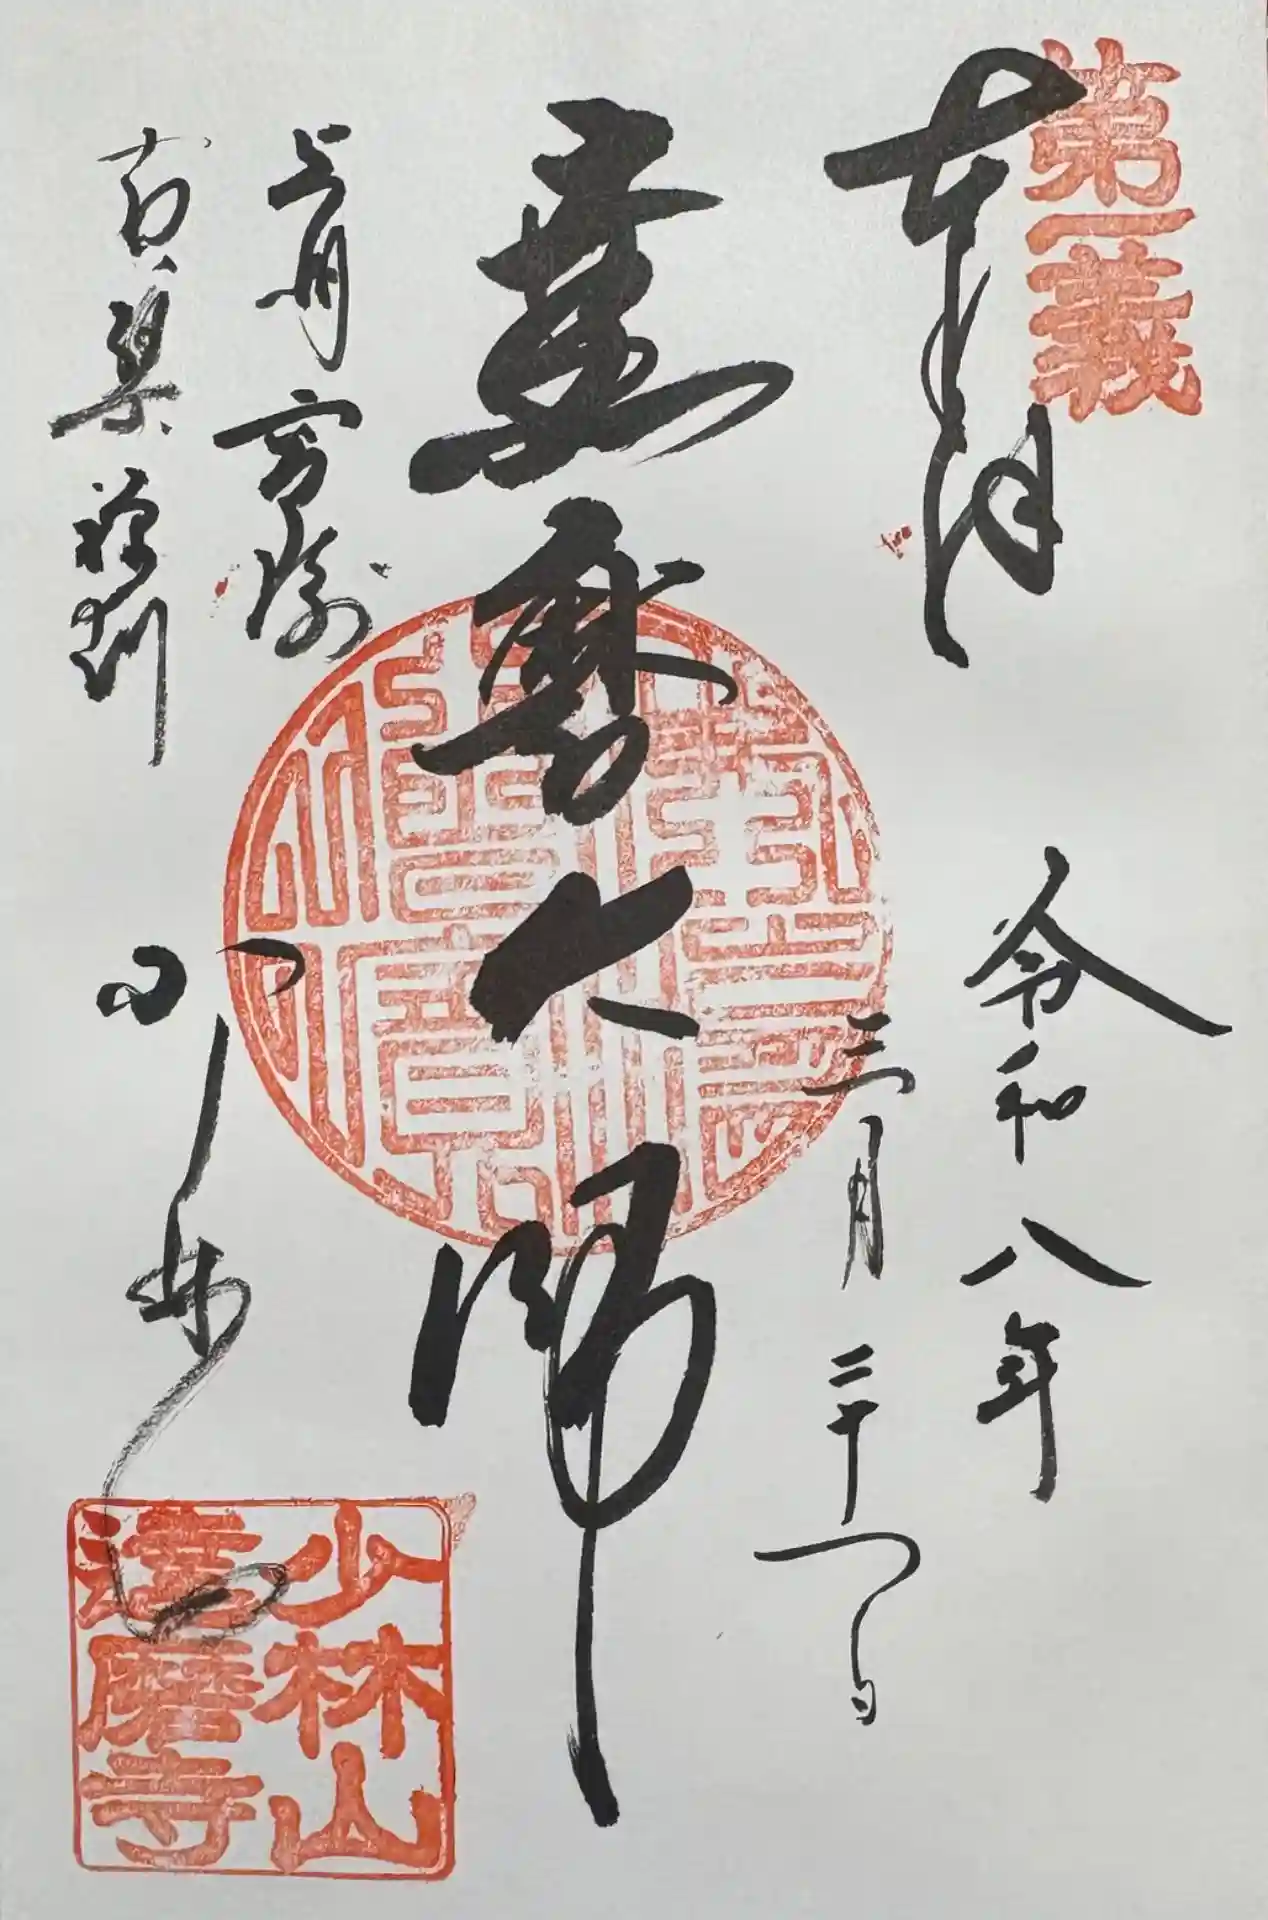 第一義
奉拝
令和八年
三月二十一日
達磨大師
上州高崎
黄檗禅刹
少林山
少林山
達磨寺